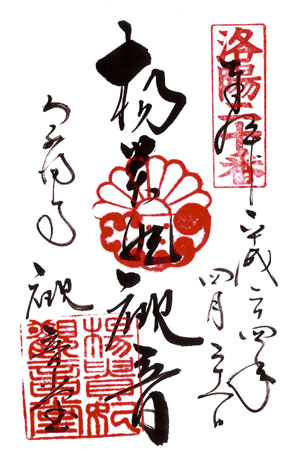 洛陽二十番
奉拝
平成二四年
四月
楊貴妃観音
泉涌寺
観音堂
楊貴妃
觀音堂